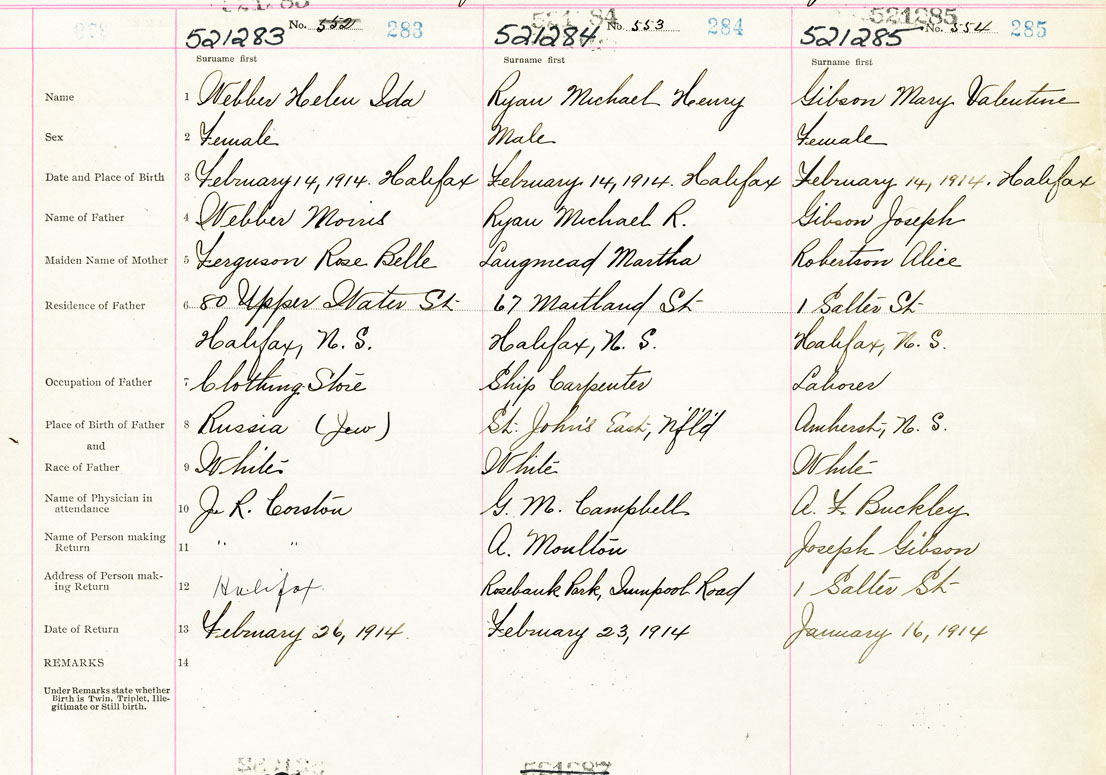 521283 No. 552 283
521284 No. 553 284
521285 521285 No. 554 285
Surname first Surname first Surname first
Name 1 Webber Helen Ida Ryan Michael Henry Gibson Mary Valentine
Sex 2 Female Male Female
Date and Place of Birth 3 February 14, 1914. Halifax February 14, 1914. Halifax February 14, 1914. Halifax
Name of Father 4 Webber Morris Ryan Michael R. Gibson Joseph
Maiden Name of Mother 5 Ferguson Rose Belle Langmead Martha Robertson Alice
Residence of Father 6 80 Upper Water St 67 Maitland St 1 Salter St
Halifax, N. S. Halifax, N. S. Halifax, N. S.
Occupation of Father 7 Clothing Store Ship Carpenter Laborer
Place of Birth of Father 8 Russia (Jew) St. John's East, Nf'l'd Amherst, N. S.
and
Race of Father 9 White White White
Name of Physician in
attendance 10 J. R. Corston G. M. Campbell A. F. Buckley
Name of Person making
Return 11 " " A. Moulton Joseph Gibson
Address of Person mak-
ing Return 12 Halifax. Rosebank Park, Road 1 Salter St
Date of Return 13 February 26, 1914. February 23, 1914 January 16, 1914
REMARKS 14
Under Remarks state whether
Birth is Twin, Triplet, Ille-
gitimate or Still birth.